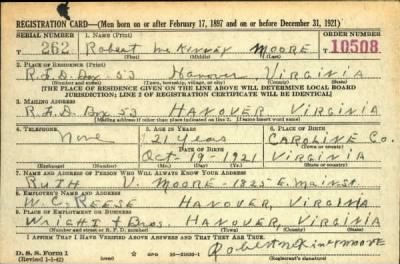 REGISTRATION CARD—(Men born on or after February 17, 1897 and on or before December 31, 1921)
SERIAL NUMBER 1. NAME (Print) ORDER NUMBER
T 262 Robert McKinney MOORE T 10508
(First) (Middle) (Last)
2. PLACE OF RESIDENCE (Print)
R.F.D. Box 53 Hanover, VIRGINIA
(Number and street) (Town, township, village, or city) (County) (State)
[THE PLACE OF RESIDENCE GIVEN ON THE LINE ABOVE WILL DETERMINE LOCAL BOARD
JURISDICTION; LINE 2 OF REGISTRATION CERTIFICATE WILL BE IDENTICAL]
3. MAILING ADDRESS
R.F.D. Box 53 HANOVER VIRGINIA
[Mailing address if other than place indicated on line 2. If same insert word same]
4. TELEPHONE 5. AGE IN YEARS 6. PLACE OF BIRTH
None 21 Years CAROLINE Co.
DATE OF BIRTH (Town or county)
Oct-19-1921 VIRGINIA
(Exchange) (Number) (Mo.) (Day) (Yr.) (State or country)
7. NAME AND ADDRESS OF PERSON WHO WILL ALWAYS KNOW YOUR ADDRESS
RUTH V. MOORE-1825 E. MAIN ST.
8. EMPLOYER'S NAME AND ADDRESS
W. C. REESE HANOVER, VIRGINIA
9. PLACE OF EMPLOYMENT OR BUSINESS
WRIGHT & Bros. HANOVER, VIRGINIA
(Number and street or R. F. D. number) (Town) (County) (State)
I AFFIRM THAT I HAVE VERIFIED ABOVE ANSWERS AND THAT THEY ARE TRUE.
Robert McKinney Moore
D. S. S. Form 1
(Revised 1-1-42) (over) GPO 16—21630-1 (Registrant's signature)